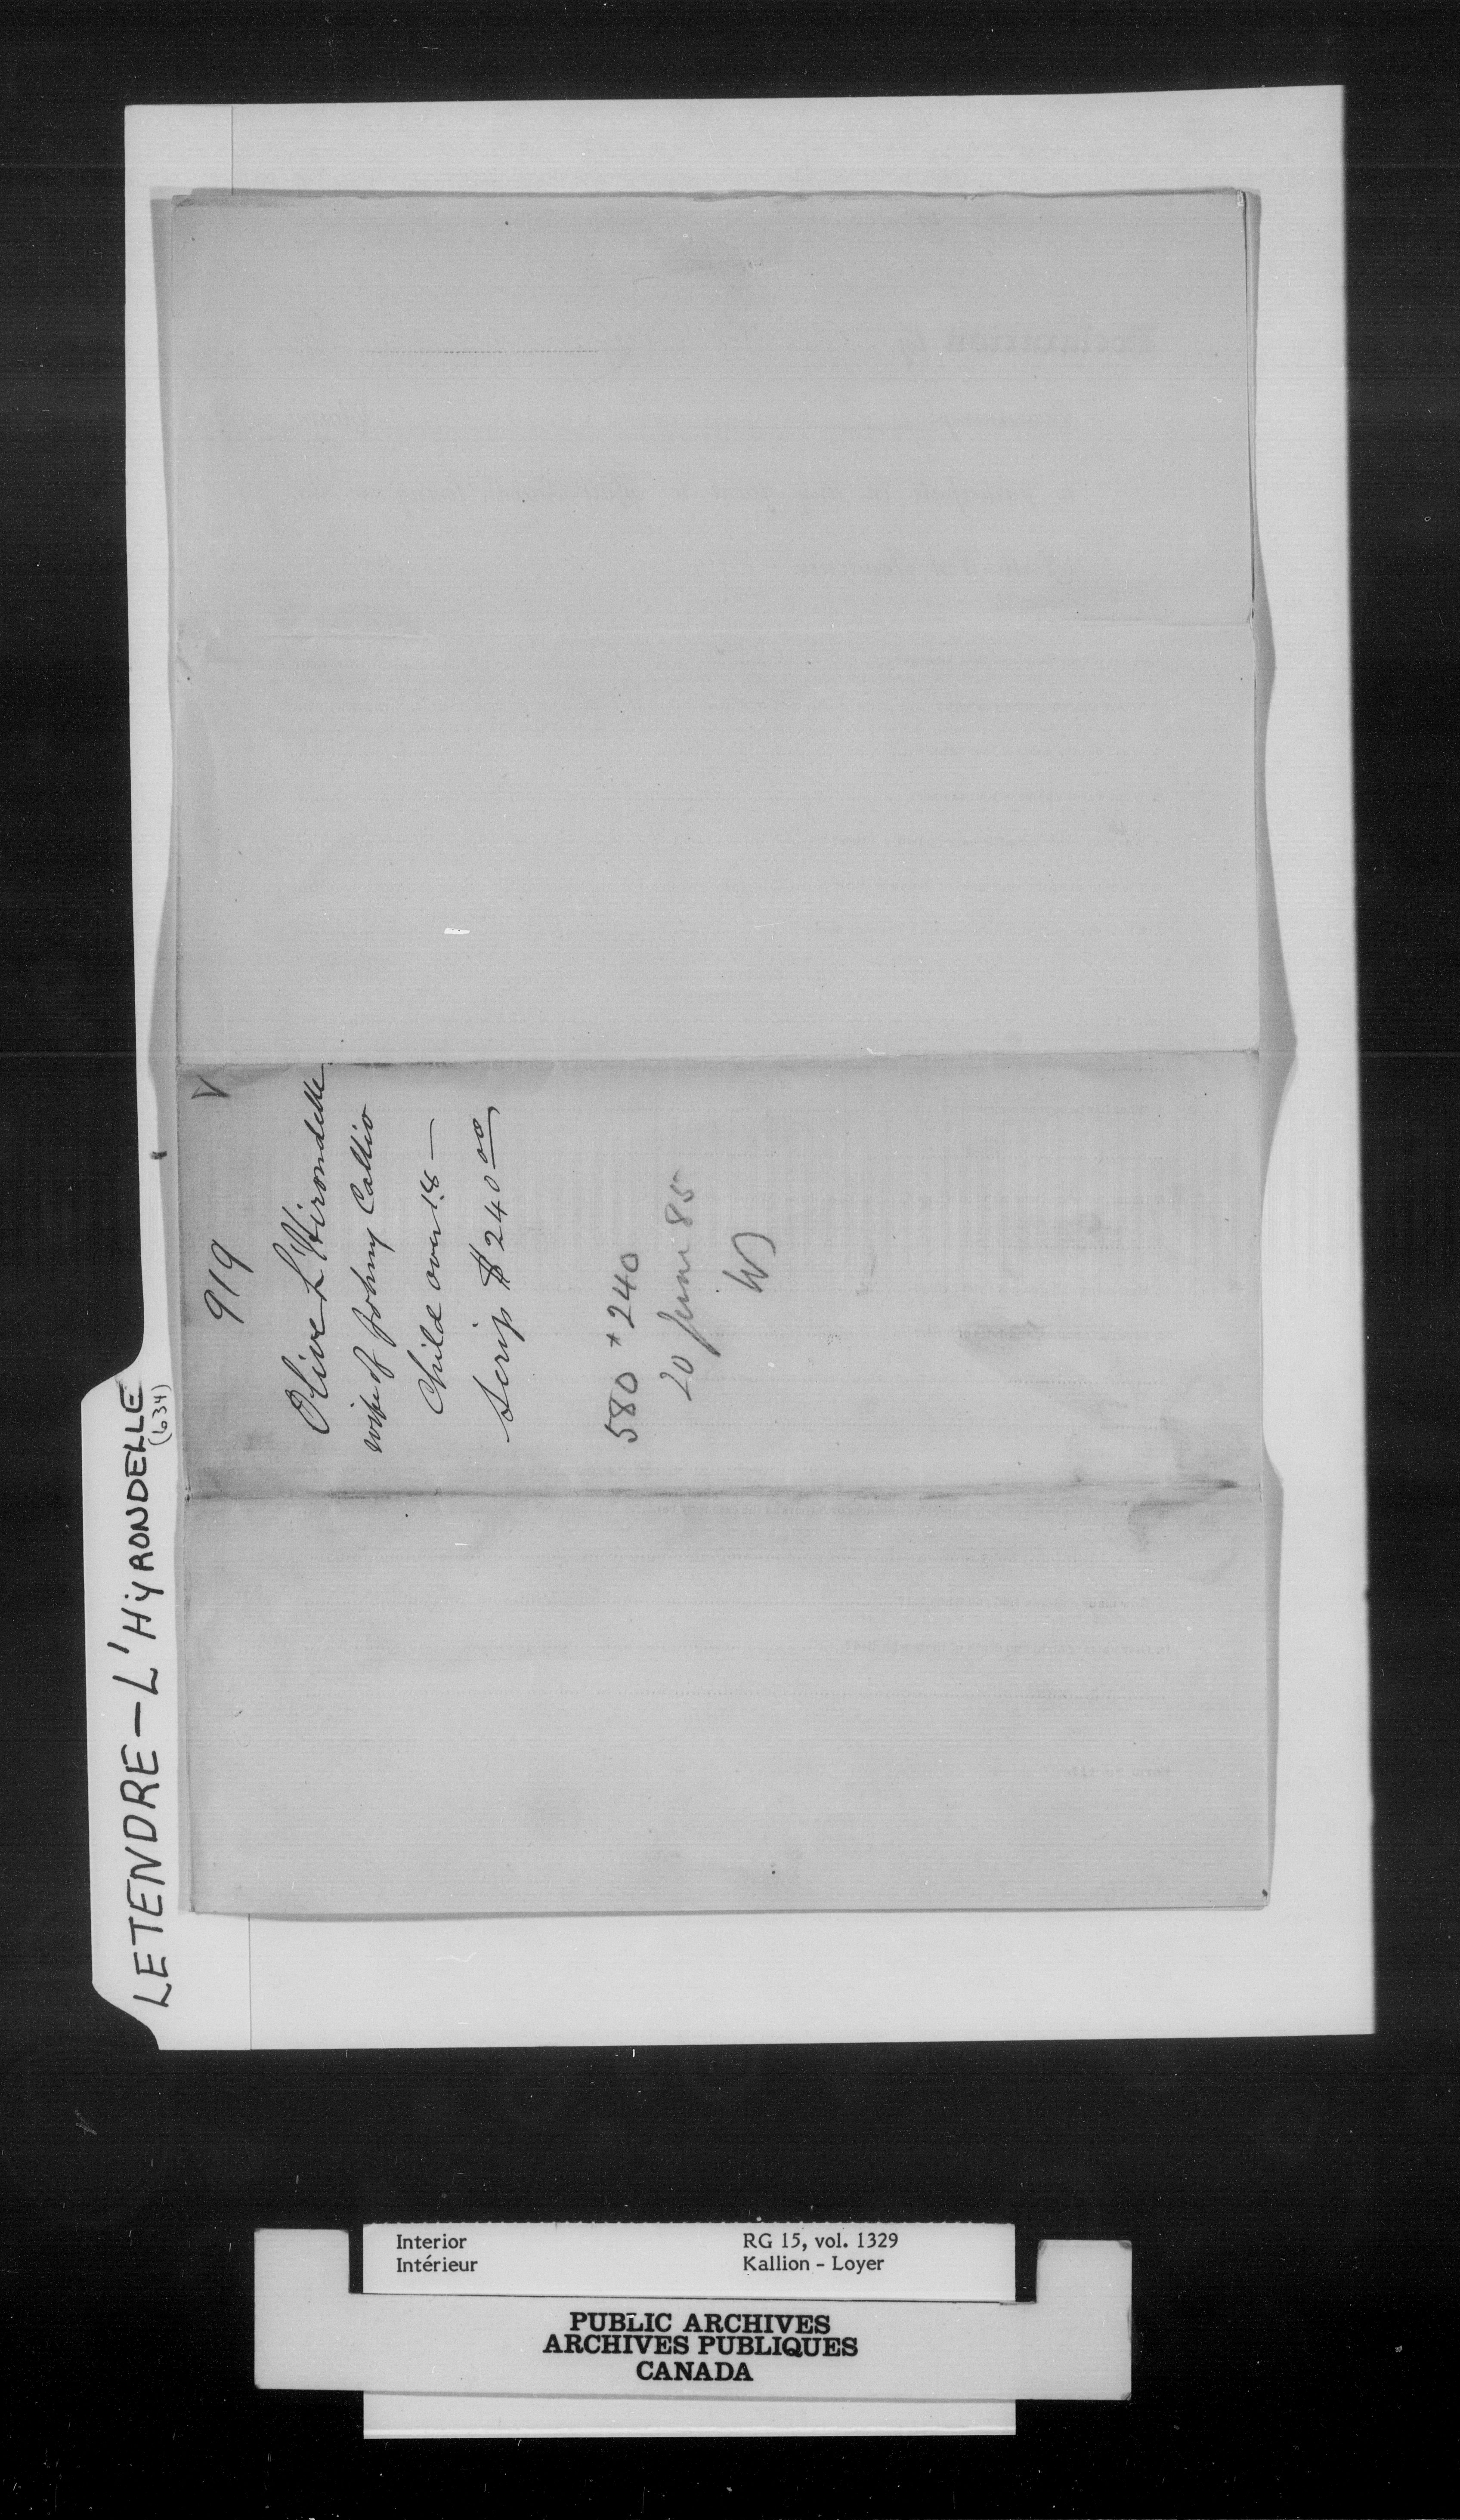 LETENDRE – L'HYRONDELLE
(634)
919
V
Olive L'Hirondelle
wife of Johny Callio
Child over 18 —
Scrip $240 00
580 * 240
20 June 85
Interior
Intérieur
RG 15, vol. 1329
Kallion - Loyer
PUBLIC ARCHIVES
ARCHIVES PUBLIQUES
CANADA